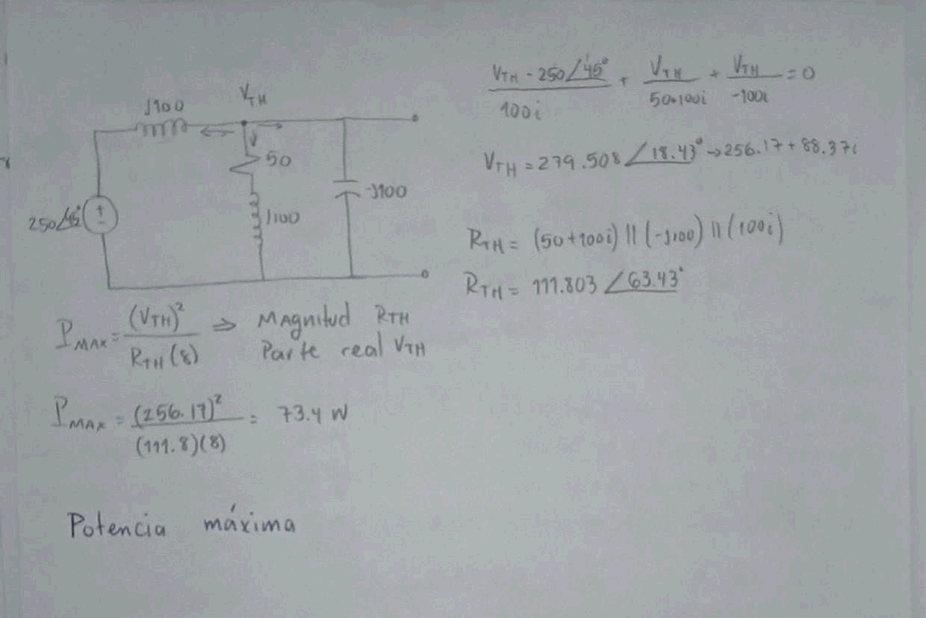 J100
V_TH
50
J100
-J100
250∠45°
+
-
(V_TH - 250∠45°)/100i + V_TH/(50+100i) + V_TH/(-100i) = 0
V_TH = 279.508 ∠18.43° → 256.17 + 88.37i
R_TH = (50+100i) || (-J100) || (100i)
R_TH = 111.803 ∠63.43°
P_MAX = (V_TH)²/(R_TH (8)) ⇒ Magnitud R_TH
Parte real V_TH
P_MAX = (256.17)²/((111.8)(8)) = 73.4 W
Potencia máxima